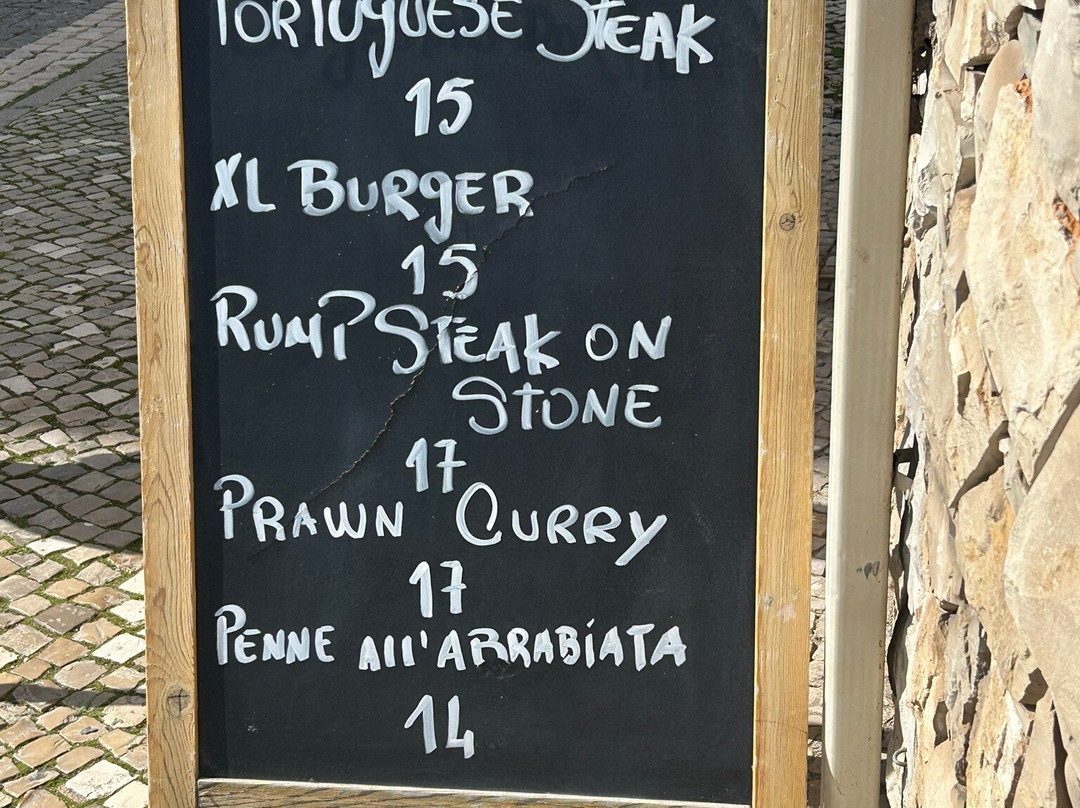 PORTUGUESE STEAK
15
XL BURGER
15
RUMP STEAK ON
STONE
17
PRAWN CURRY
17
PENNE All'ARRABiATA
14